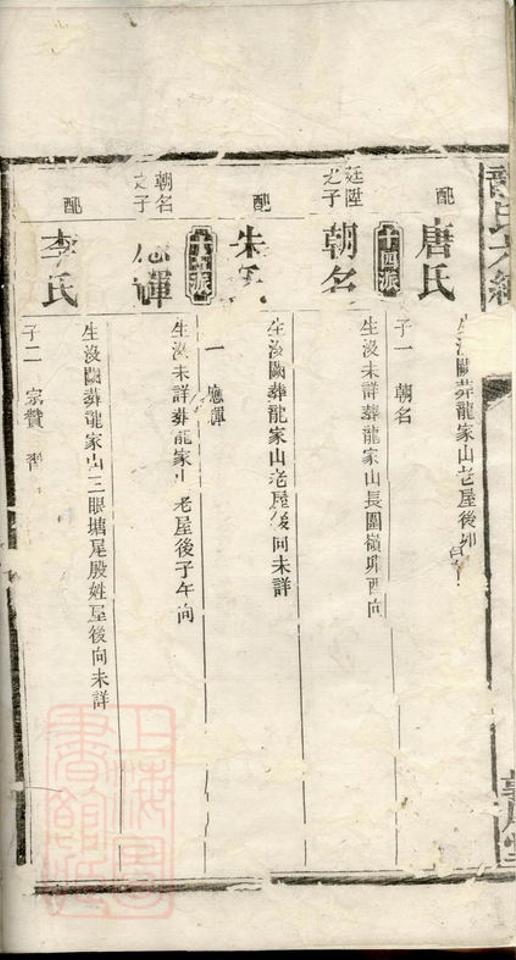 配
唐氏
生沒闕葬龍家山老屋後卯
子一 朝名
十四派
廷陞之子
朝名
生沒未詳葬龍家山長圍嶺卯酉向
配
朱氏
生沒闕葬龍家山老屋後向未詳
一 應輝
派
朝名之子
應輝
生沒未詳葬龍家山老屋後子午向
配
李氏
生沒闕葬龍家山三眼塘尾殷姓屋後向未詳
子二 宗贊
上海圖書館藏